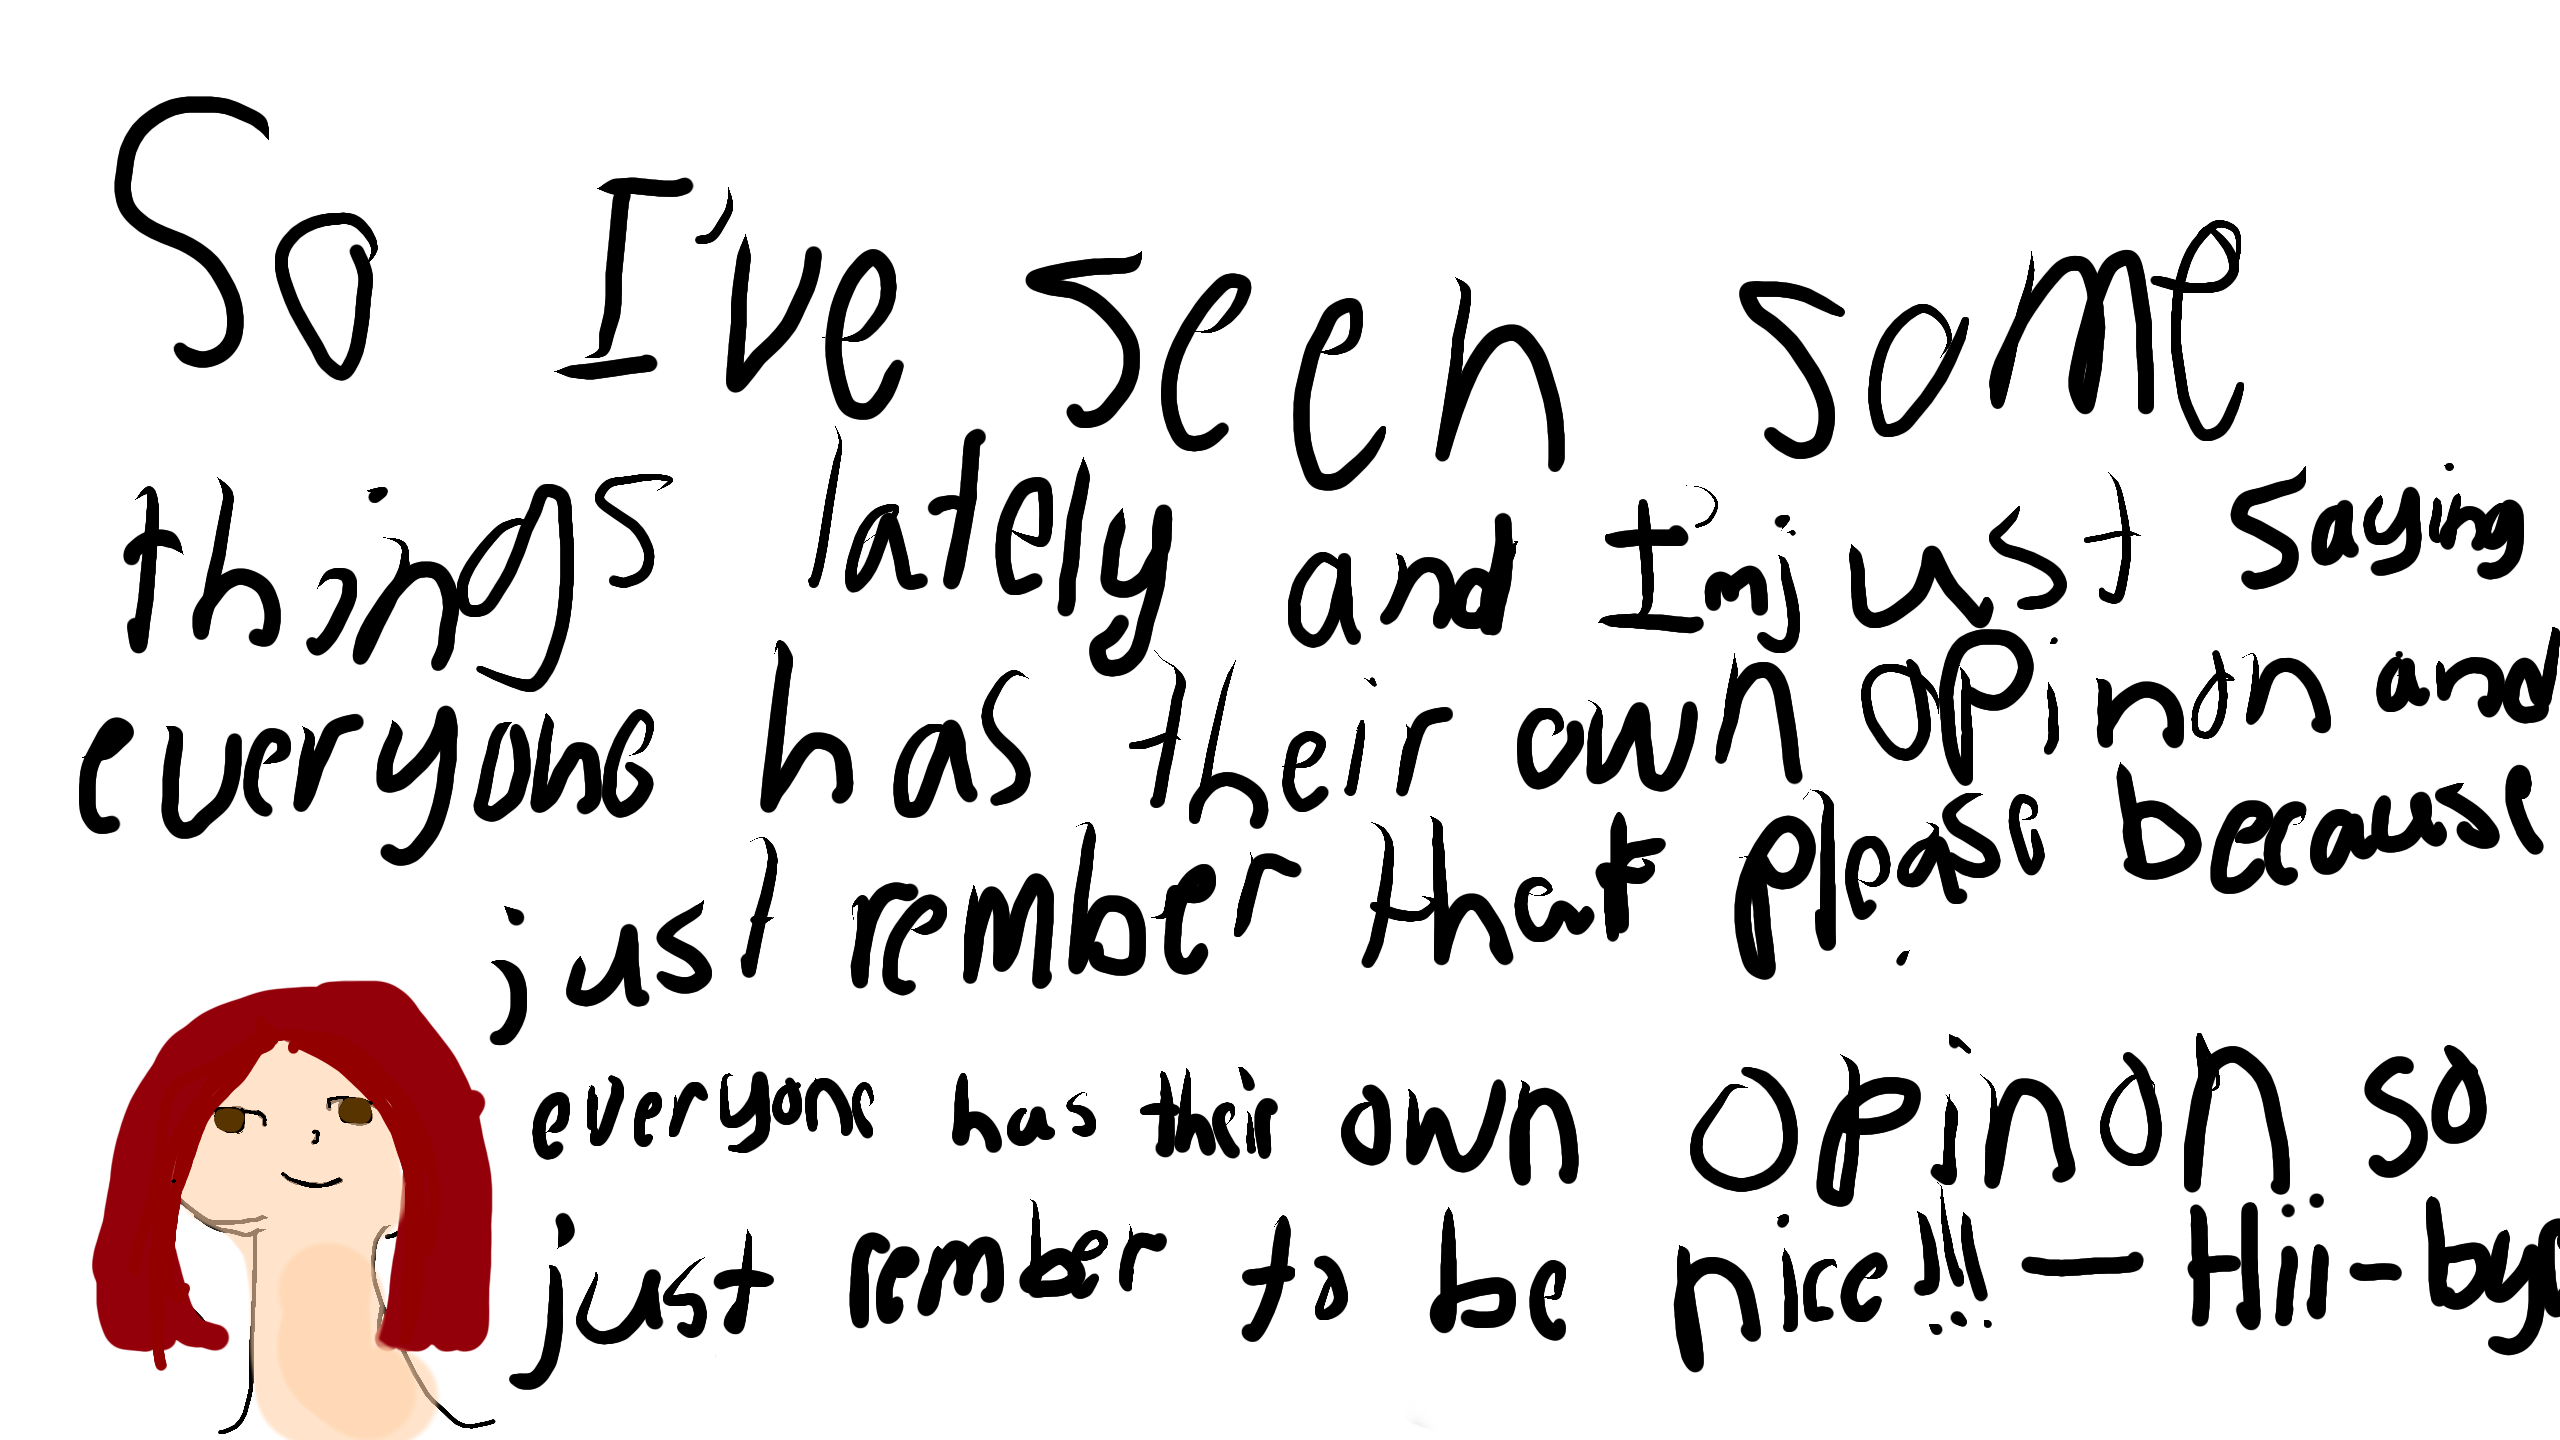 So I've seen some
things lately and I'm just saying
everyone has their own opinon and
just rember that please because
everyone has their own opinon so
just rember to be nice!!! — Hii-bye